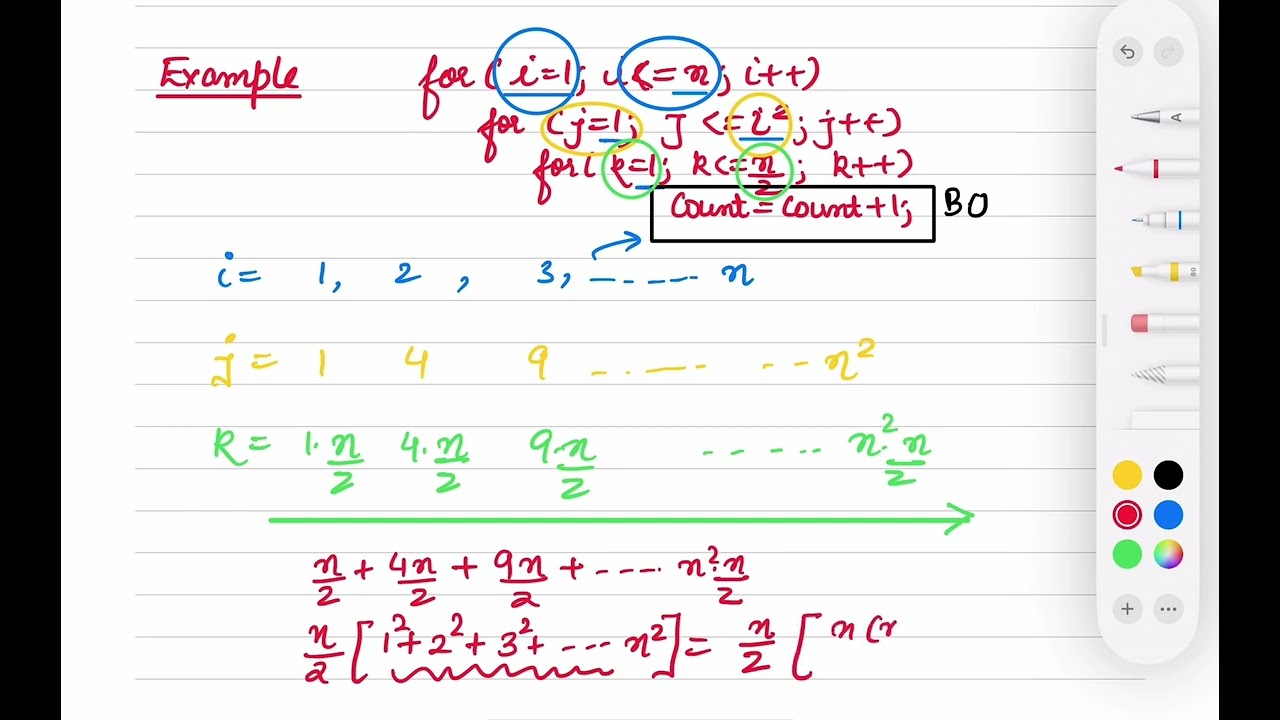 Example for ( i=1; i<=n; i++)
for (j=1; j<=i²; j++)
for( k=1; k<=n/2; k++)
Count = Count+1; BO
i= 1, 2 , 3, ------ n
j = 1 4 9 ------ n²
k = 1·n/2 4·n/2 9·n/2 ----- n²·n/2
n/2 + 4n/2 + 9n/2 + ---- n²·n/2
n/2 [ 1²+2²+3²+ --- n² ] = n/2 [ n (